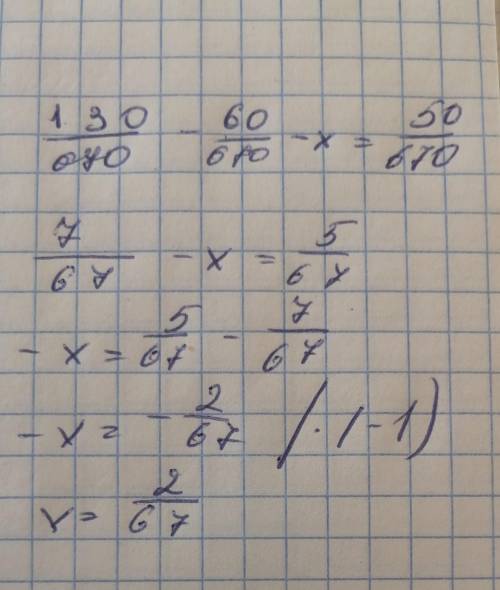 130/670 - 60/670 - x = 50/670
7/67 - x = 5/67
- x = 5/67 - 7/67
- x = - 2/67 /·(-1)
x = 2/67